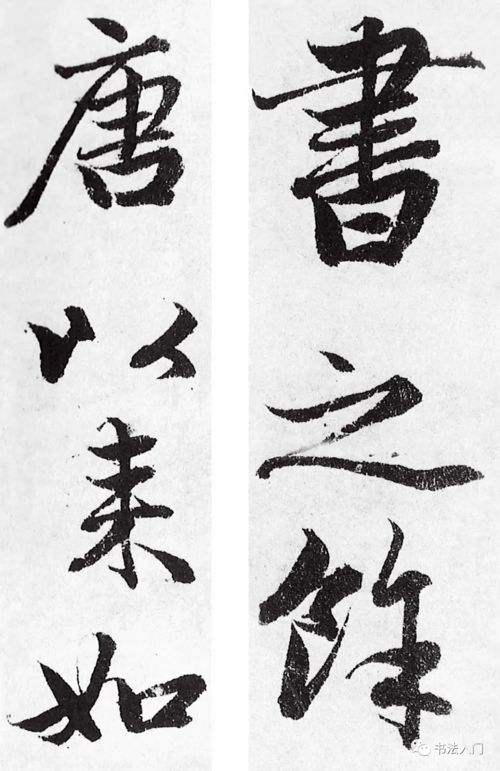 書之餘
唐以来如
书法入门